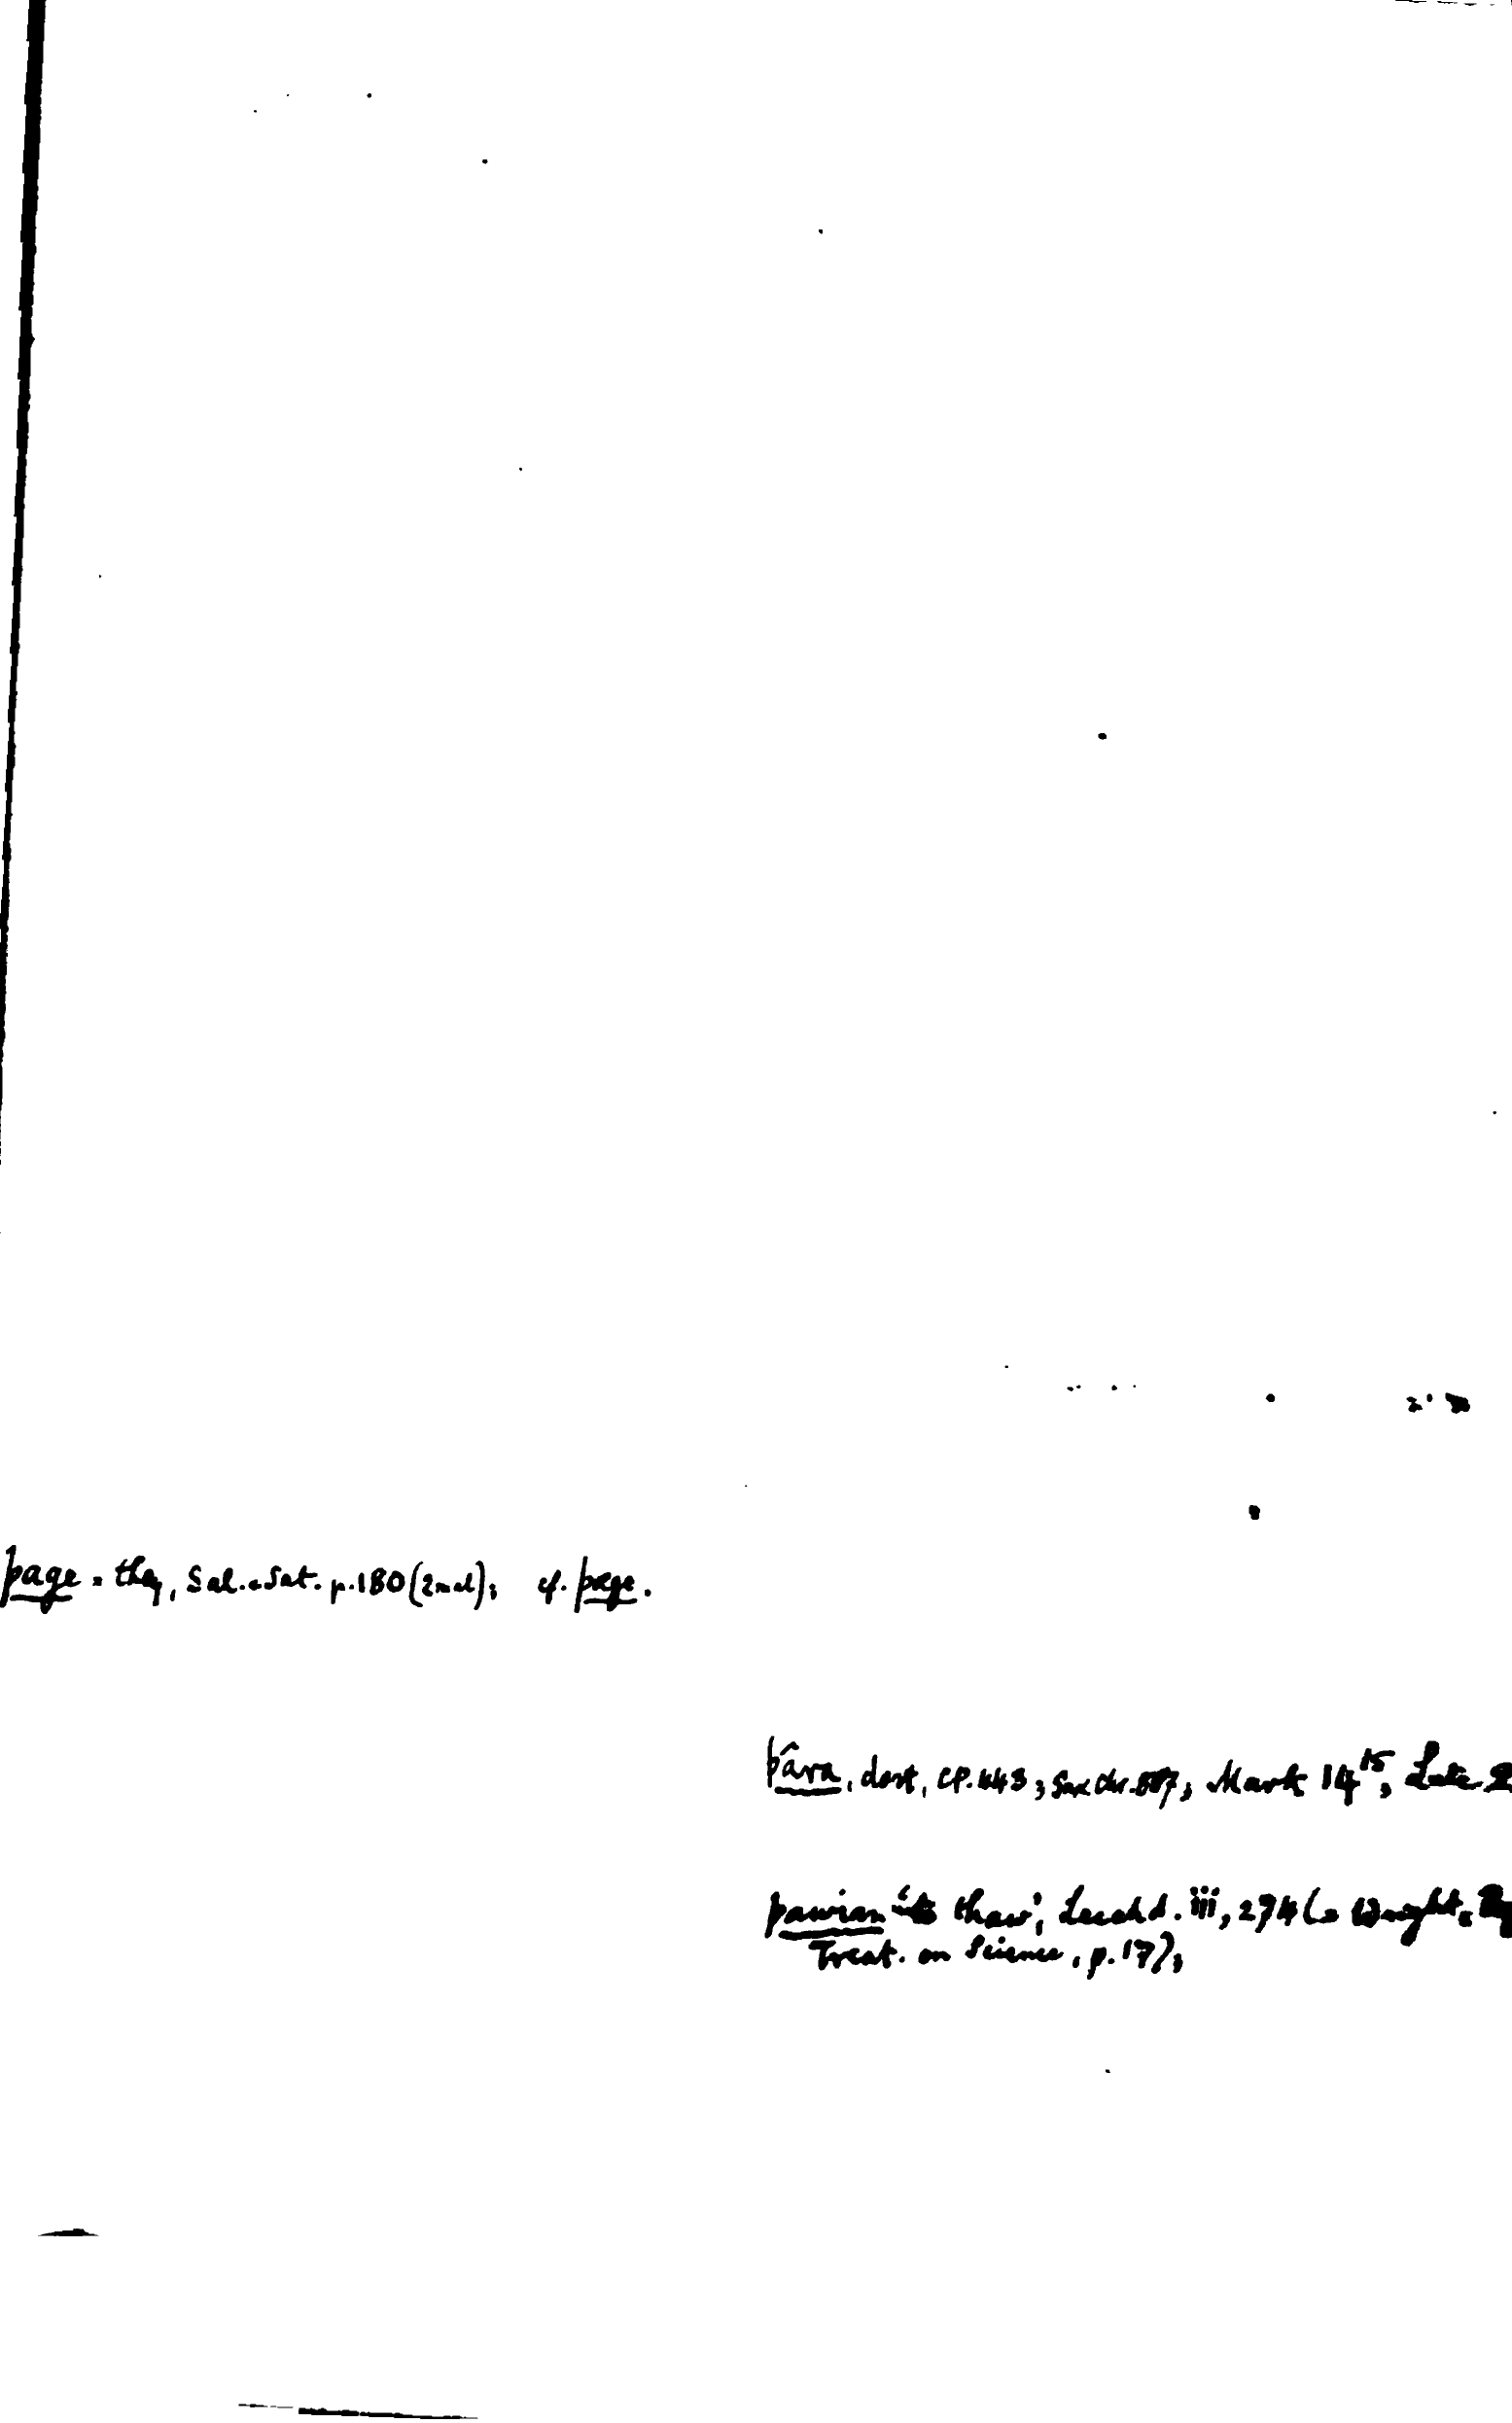 þage = they, Sal. & Sat. p. 180 (2 mal); cf. þæge.
þâra, dort, CP. 443; Sax Chr. 887; Mark 14¹⁵; Luke
þawian 'to thaw', Leechd. iii, 274 (= Wright,
Treat. on Science, p. 17);